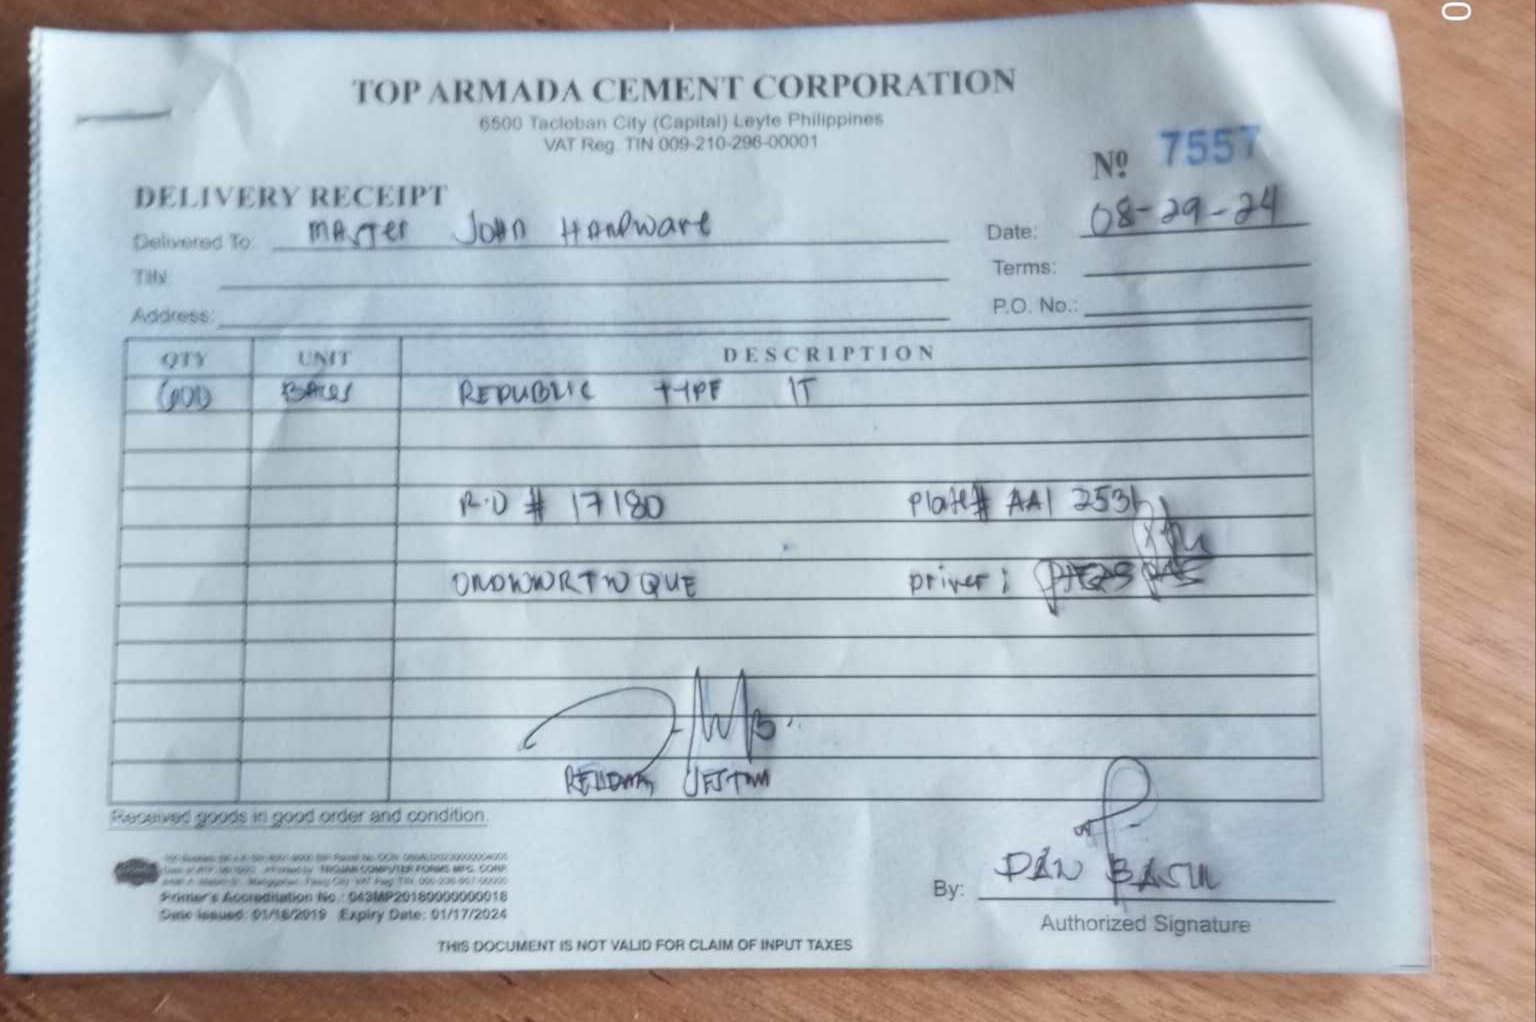 TOP ARMADA CEMENT CORPORATION
6500 Tacloban City (Capital) Leyte Philippines
VAT Reg. TIN 009-210-296-00001
Nº 7557
DELIVERY RECEIPT
Delivered To: Master John Hardware
Date: 08-29-24
TIN:
Terms:
Address:
P.O. No.:
QTY UNIT DESCRIPTION
600 BAGS REPUBLIC TYPE 1T
R.O # 17180 Plate# AAI 2531
QUE Driver:
Received goods in good order and condition.
TROJAN COMPUTER FORMS MFG. CORP.
Printer's Accreditation No.: 043MP20180000000018
Date Issued: 01/18/2019 Expiry Date: 01/17/2024
By: DAN
Authorized Signature
THIS DOCUMENT IS NOT VALID FOR CLAIM OF INPUT TAXES